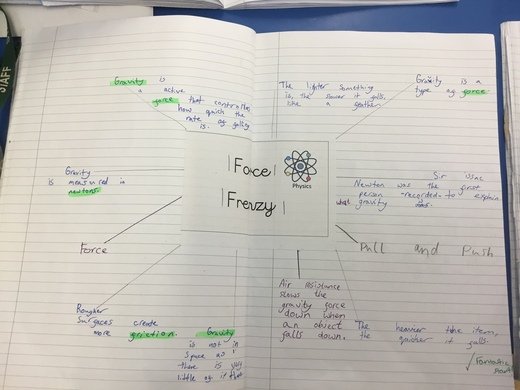 STAFF
Gravity is
a active
force that controlles
how quick the
rate of falling
is.
The lighter something
is, the slower it falls,
like a feather.
Gravity is a
type of force
Gravity
is measured in
newtons.
Force
Frenzy
Physics
Sir Issac
Newton was the first
person -recorded- to explain
what gravity does.
Force
Pull and Push
Rougher
Surfaces create
more friction.
Gravity
is not in
Space as
there is very
little of it there
Air resistance
slows the
gravity force
down when
an object
falls down.
The heavier the item,
the quicker it falls.
Fantastic